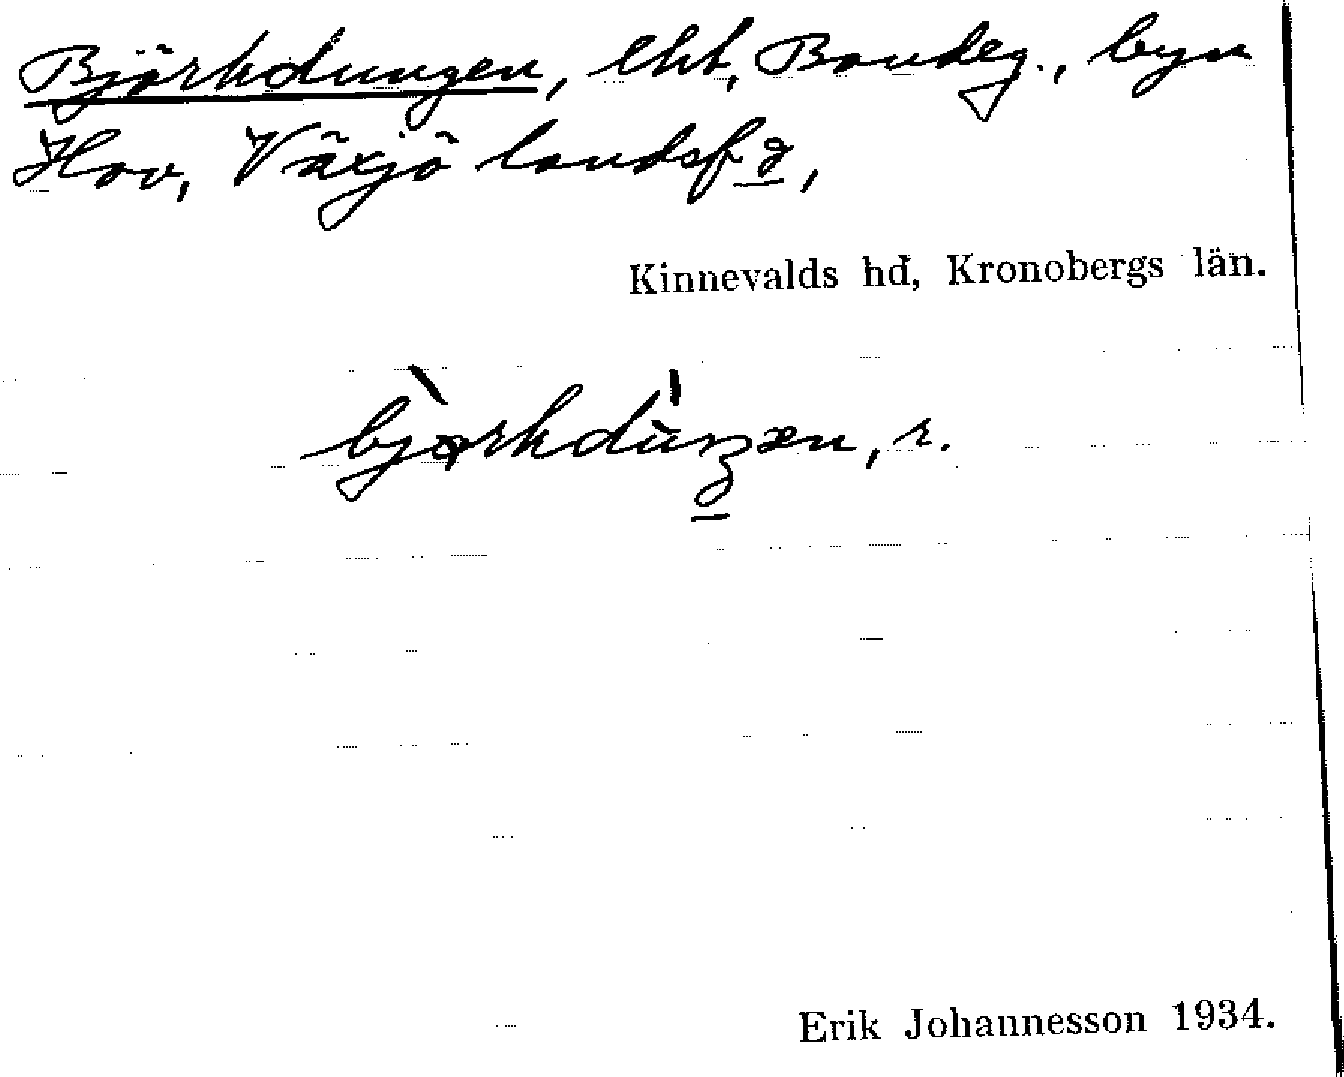 Björkdungen, lht, Bondeg., byn
Hov, Växjö landsf d,
Kinnevalds hd, Kronobergs län.
bjòrkdùngæn, r.
Erik Johannesson 1934.